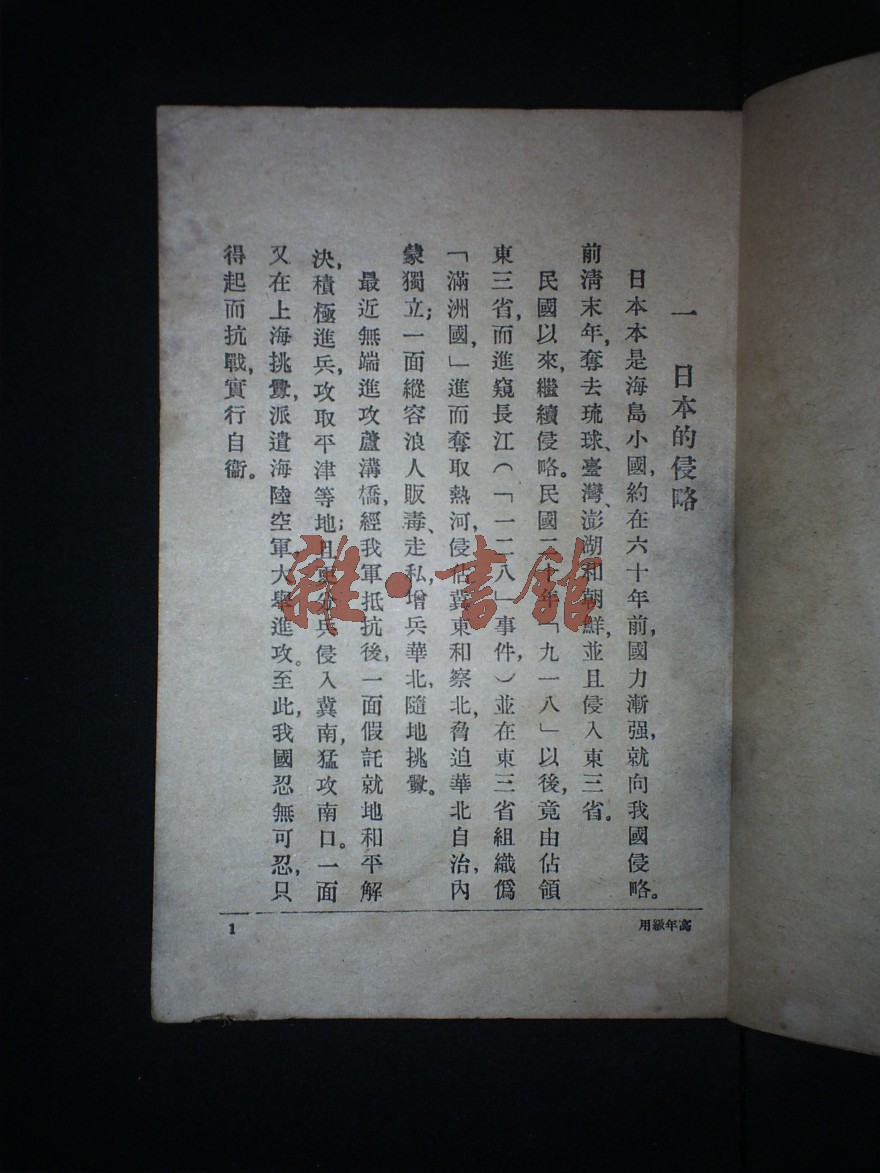 一　日本的侵略
日本本是海島小國，約在六十年前，國力漸强，就向我國侵略。
前清末年，奪去琉球、臺灣、澎湖和朝鮮，並且侵入東三省。
民國以來，繼續侵略。民國二十年「九一八」以後，竟由佔領
東三省，而進窺長江（「一二八」事件，）並在東三省組織僞
「滿洲國，」進而奪取熱河，侵佔冀東和察北，脅迫華北自治，內
蒙獨立；一面縱容浪人販毒、走私，增兵華北，隨地挑釁。
最近無端進攻蘆溝橋，經我軍抵抗後，一面假託就地和平解
決，積極進兵，攻取平津等地；且更分兵侵入冀南，猛攻南口。一面
又在上海挑釁，派遣海陸空軍，大舉進攻。至此，我國忍無可忍，只
得起而抗戰，實行自衞。
高年級用
1
雜·書館